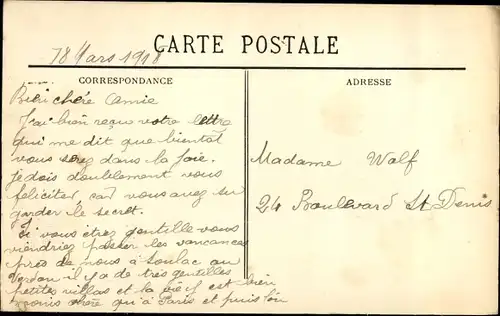 18 Mars 1918
CARTE POSTALE
CORRESPONDANCE
Bien chère amie
J'ai bien reçu votre lettre
qui me dit que bientôt
vous serez dans la joie.
je dois doublement vous
féliciter, car vous avez su
garder le secret.
Si vous étiez gentille vous
viendriez passer les vancances
près de nous à Soulac au
Verdon il y a de très gentilles
petites villas et la vie y est bien
moins chère qu'à Paris et puis loin
ADRESSE
Madame Walf
24 Boulevard St Denis